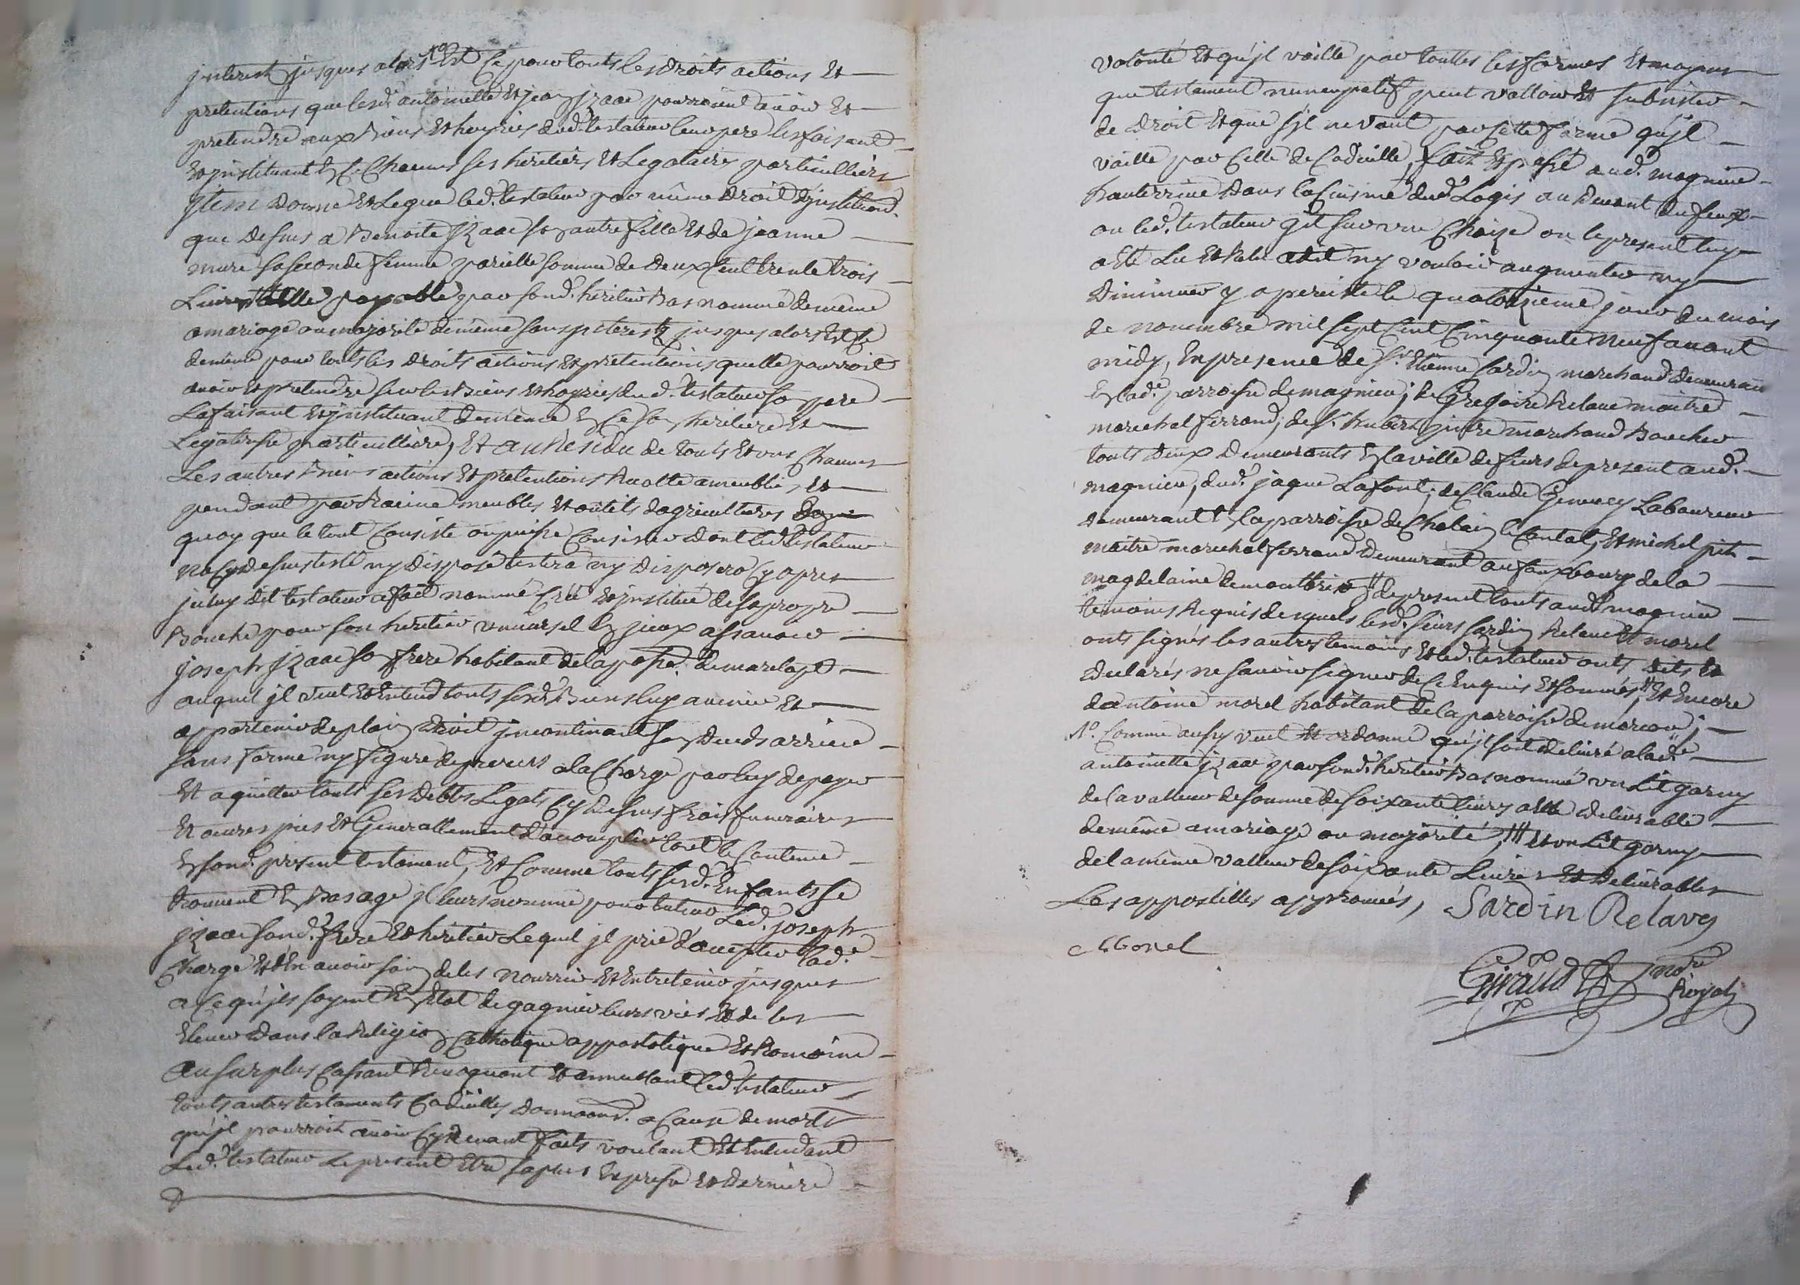 jnterest jusques alors N.º Et Ce pour touts les droits actions Et
pretentions que lesd. antoinette Et jean jzaac pourroient avoir Et
pretendre aux Biens Et hoyries dud. testateur leur pere les faisant
Et jnstituant En Ce Chacun ses heritiers Et Legataires particulliers
jtem donne Et Legue led. testateur par même droit d'jnstitution
que dessus a Benoite jzaac son autre fille Et de jeanne
mure sa seconde femme parielle somme de deux Cent trente trois
Livres payable par sond. heritier Bas nommé de même
a mariage ou majorité de même sans jnterest jusques alors Et Ce
de même pour touts les droits actions Et pretentions quelle pourroit
avoir Et pretendre sur les Biens Et hoyries dud. testateur son pere
La faisant Et jnstituant de même En Ce son heritiere Et
Legataire particulliere, Et au Residu de touts Et uns Chacuns
Les autres Biens actions Et pretentions Recolte ameublie Et
pendant par Racine meubles Et outils dagricultures
quoy que le tout Consiste ou puisse Consister dont led. testateur
na Cy dessus testé ny disposé testera ny disposera Cy apres
jceluy dit testateur a fait nommé Créé Et jnstitué de sa propre
Bouche pour son heritier universel
joseph jzaac son frere habitant de la
auquel jl veut Et Entend touts sesd. Biens luy avenir Et
appartenir de plain droit jncontinant son deceds arrivé
sans forme ny figure de proces a la Charge par luy de payer
Et aquitter touts ses debts Legats Cy dessus frais funeraires
Et œuvres pies Et Generallement d'accomplir tout le Contenu
En sond. present testament, Et Comme touts sesd. Enfants se
trouvent En Bas age jl leurs nomme pour tuteur Led. joseph
jzaac sond. frere Et heritier Lequel jl prie d'accepter lad.
Charge Et d'En avoir soin de les nourrir Et Entretenir jusques
a Ce qu'jls soyent En Etat de gagner leurs vies Et de les
Elever dans la Religion Catholique appostolique Et Romaine
au surplus Cassant Revoquant Et annullant led. testateur
touts autres testaments Codicilles donnaons. a Cause de mort
qu'jl pourroit avoir Cy devant faits voulant Et Entendant
Led. testateur Le present Etre sa plus Expresse Et derniere
volonté Et qu'jl vaille par touttes les formes Et moyens
que testament nuncupatif peut valloir Et subsister
de droit Et que s'jl ne vaut par Cette forme qu'jl
vaille par Celle de Codicille, fait Et passé aud. magnieu
hauterrive dans la Cuisine dud. Logis au devant du feux
ou led. testateur git sur une Chaize ou le present luy
a Eté Lu Et Relu a dit ny vouloir augmenter ny
Diminuer y a persisté le quatorzieme jour du mois
de novembre mil sept Cent Cinquante neuf avant
midy, En presence de sr. Etienne Sardin marchand demeurant
En lad. parroisse de magnieu; de Gregoire Relave maitre
marechal ferrand; de sr. hubert marchand Boucher
touts deux demeurants En la ville de feurs de present aud.
magnieu, dud. jaque Lafont; de Claude Laboureur
demeurant En la parroisse de Chalain le Contal, Et michel
maitre marechal ferrand demeurant au fauxbourg de la
magdelaine de montbrison # de present touts aud. magnieu
temoins Requis desquels lesd. sieurs Sardin Relave Et morel
onts signés les autres temoins Et led. testateur onts dits Et
declarés ne sçavoir signer de Ce Enquis Et sommés, # Et Encore
d'antoine morel habitant de la parroisse de ;
N.º Comme aussy veut Et ordonne qu'jl soit delivré a lad.
antoinette jzaac par sond. heritier Bas nommé un Lit garny
de la valleur de somme de soixante livres a Elle delivrable
de même a mariage ou majorité, Et un Lit garny
de la même valleur de soixante Livres Et delivrable
Les appostilles approuvés, Sardin Relave
Morel
Giraud nore
Royal